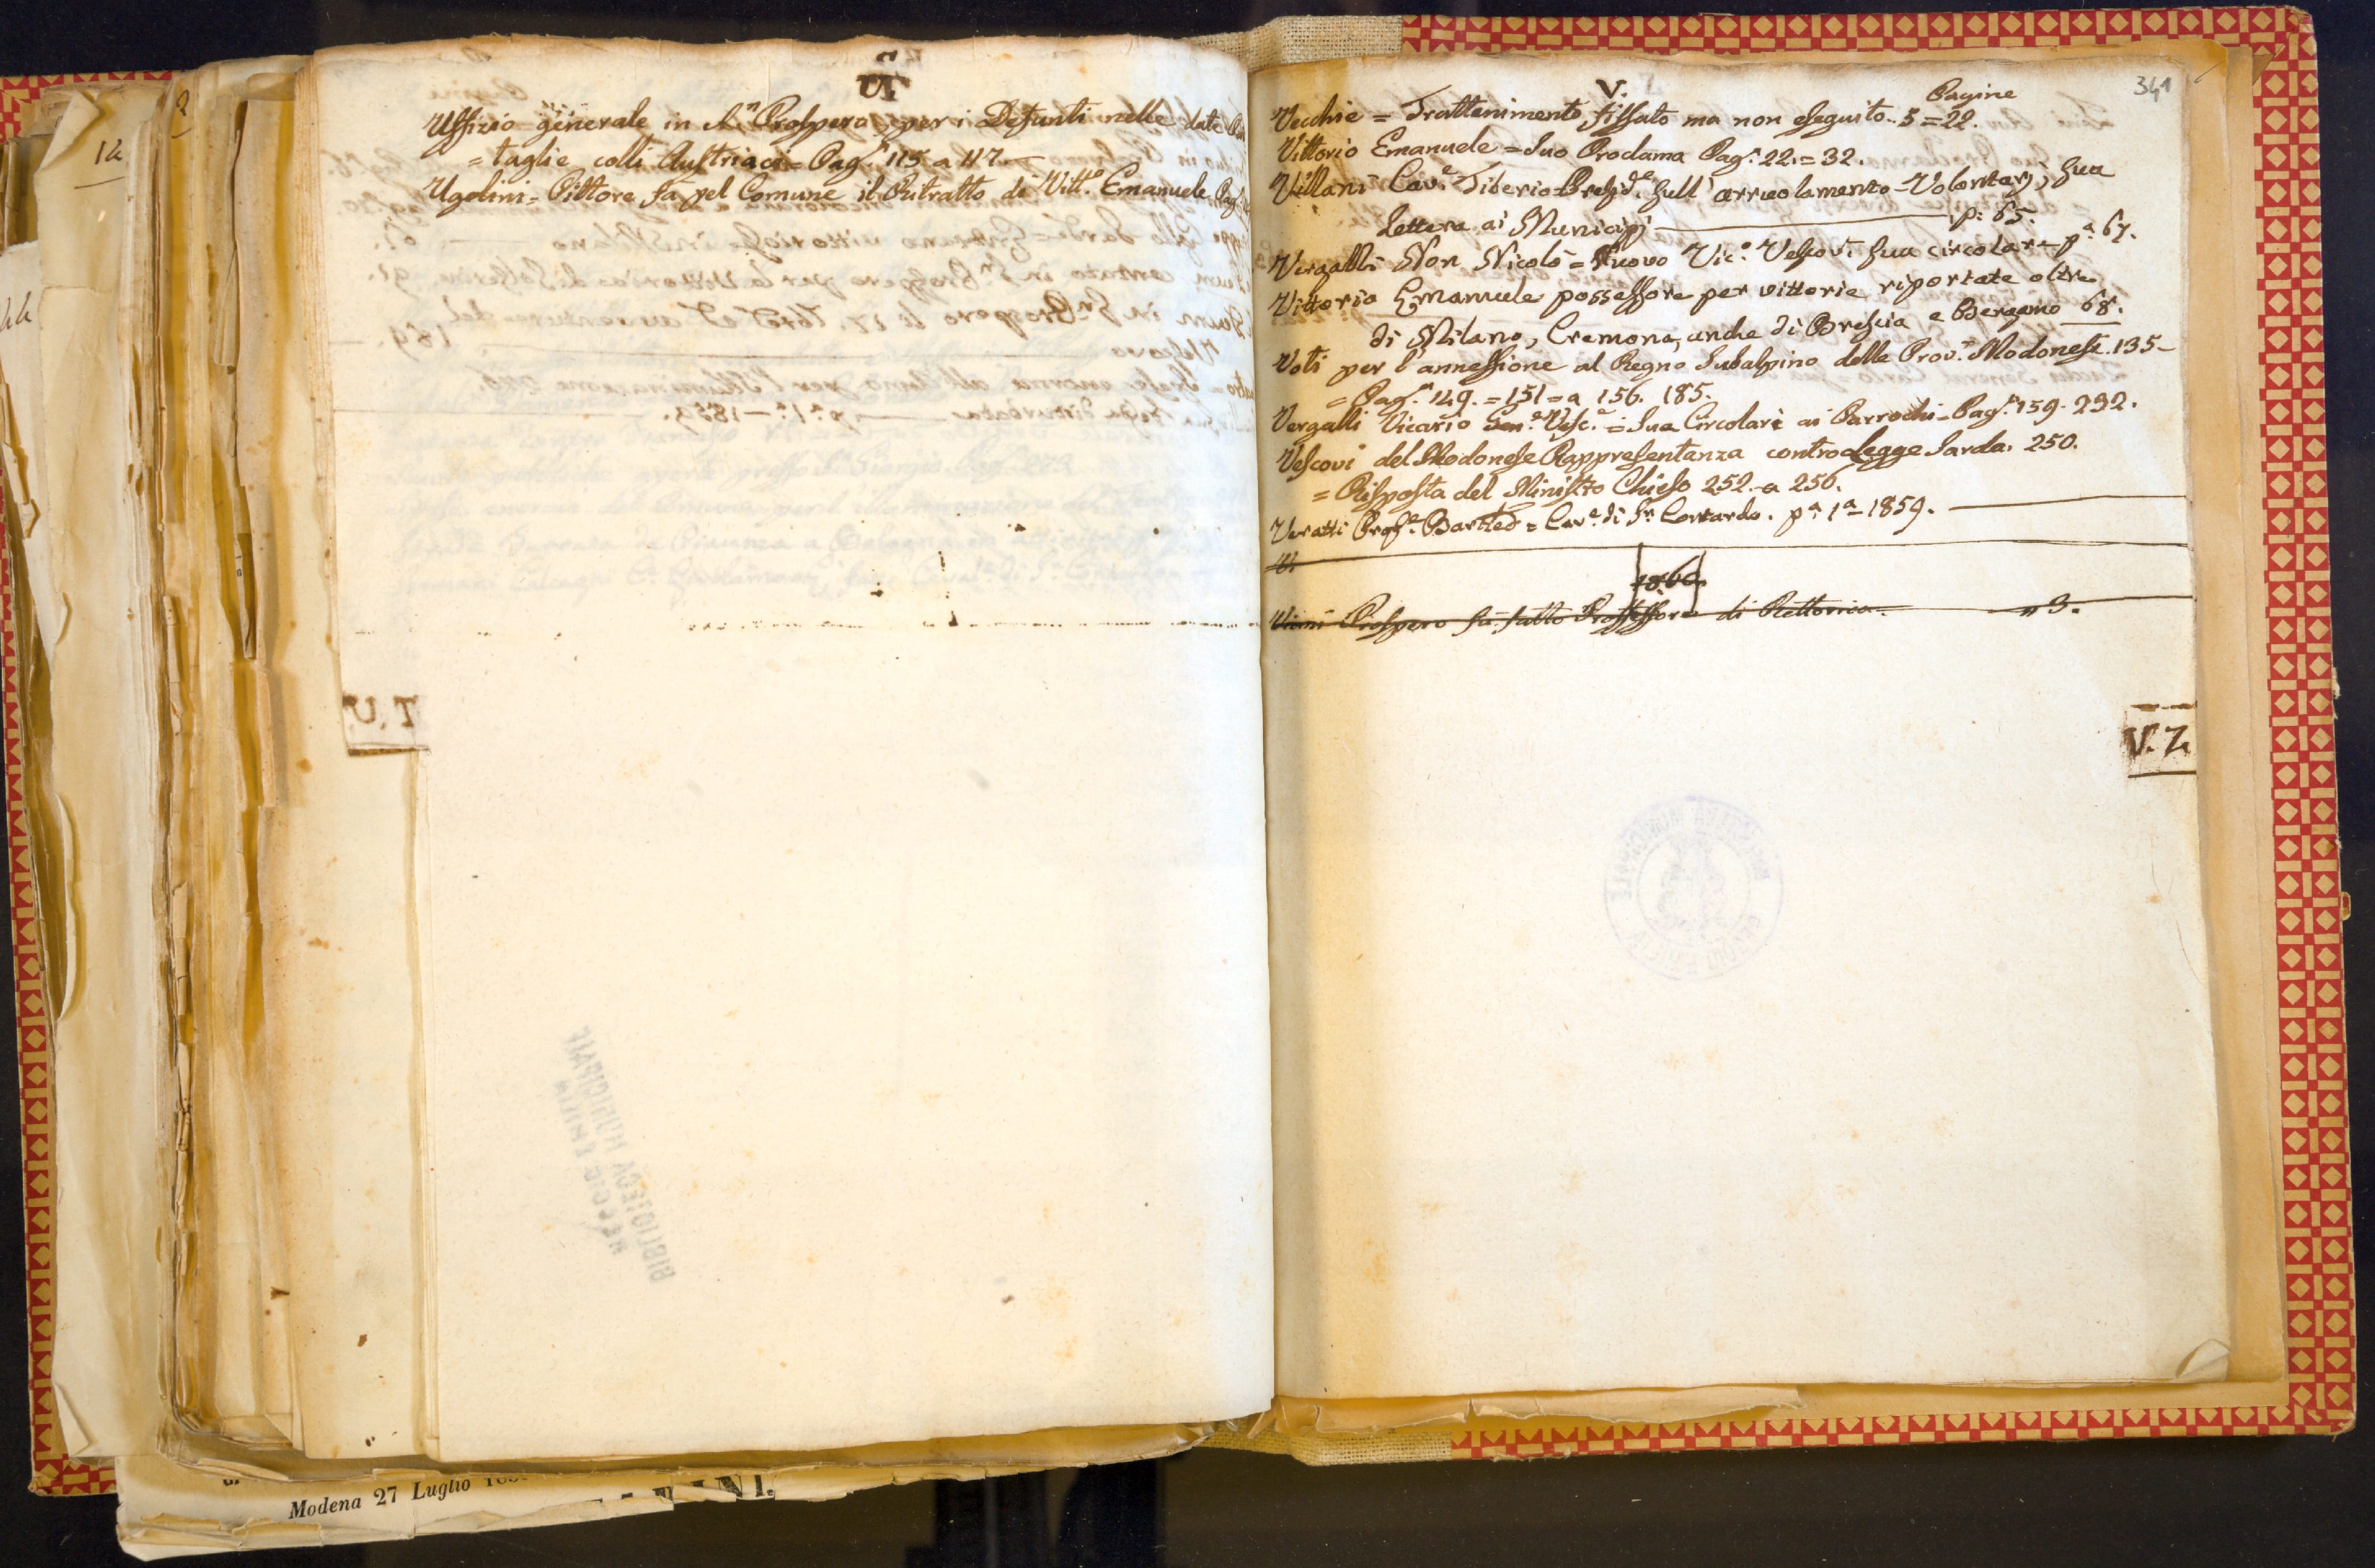 U.
Uffizio generale in S.n Prospero per i Defunti nelle date
= taglie colli Austriaci = Pag.e 115 a 117.
Ugolini = Pittore fa pel Comune il Ritratto di Vitt.o Emanuele Pag.
T. U.
12
2
REGGIO EMILIA
BIBLIOTECA MUNICIPALE
Modena 27 Luglio
341
V.
Pagine
Vecchie = Trattenimento fissato ma non eseguito.. 5 = 22.
Vittorio Emanuele = Suo Proclama Pag.e 22. = 32.
Villani Cav.e Tiberio Presid.e sull' arruolamento Volontarj, sua
Lettera ai Municipj p: 65.
Vergalli Don Nicolò = Nuovo Vic.o Vescov.i sua circolare p.a 67.
Vittorio Emanuele possessore per vittorie riportate oltre
di Milano, Cremona, anche di Brescia e Bergamo 68.
Voti per l'annessione al Regno Subalpino delle Prov.e Modonesi. 135 -
= Pag.e 149. = 151 = a 156. 185.
Vergalli Vicario Gen.e Vesc.e = Sua Circolare ai Parrochi = Pag.e 159. 232.
Vescovi del Modonese Rappresentanza contro Legge Sarda. 250.
= Risposta del Ministro Chiesa 252. a 256.
Veratti Prof.e Bart.eo = Cav.e di S.n Contardo. p.a 1.a 1859.
V.
1860
Viani Prospero fu fatto Professore di Rettorica. " 3.
V. Z.